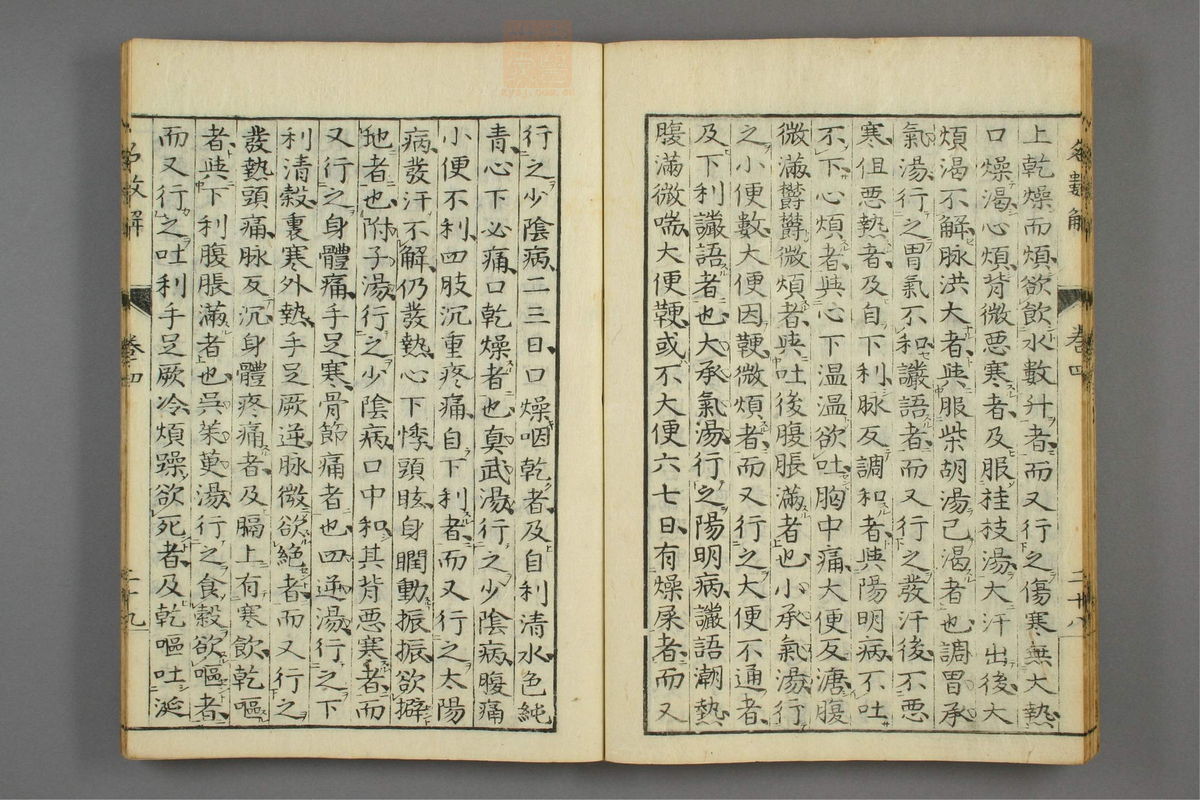 上乾燥而煩欲飲水數升者而又行之傷寒無大熱
口燥渴心煩背微惡寒者及服桂枝湯大汗出後大
煩渴不解脉洪大者與服柴胡湯已渴者也調胃承
氣湯行之胃氣不和讝語者而又行之發汗後不惡
寒但惡熱者及自下利脉反調和者與陽明病不吐
不下心煩者與心下温温欲吐胸中痛大便反溏腹
微滿欝欝微煩者與吐後腹脹滿者也小承氣湯行
之小便數大便因鞕微煩者而又行之大便不通者
及下利讝語者也大承氣湯行之陽明病讝語潮熱
腹滿微喘大便鞕或不大便六七日有燥屎者而又
行之少陰病二三日口燥咽乾者及自利清水色純
青心下必痛口乾燥者也真武湯行之少陰病腹痛
小便不利四肢沉重疼痛自下利者而又行之太陽
病發汗不解仍發熱心下悸頭眩身瞤動振振欲擗
地者也附子湯行之少陰病口中和其背惡寒者而
又行之身體痛手足寒骨節痛者也四逆湯行之下
利清穀裏寒外熱手足厥逆脉微欲絶者而又行之
發熱頭痛脉反沉身體疼痛者及膈上有寒飲乾嘔
者與下利腹脹滿者也呉茱萸湯行之食穀欲嘔者
而又行之吐利手足厥冷煩躁欲死者及乾嘔吐涎
卷四
二十九